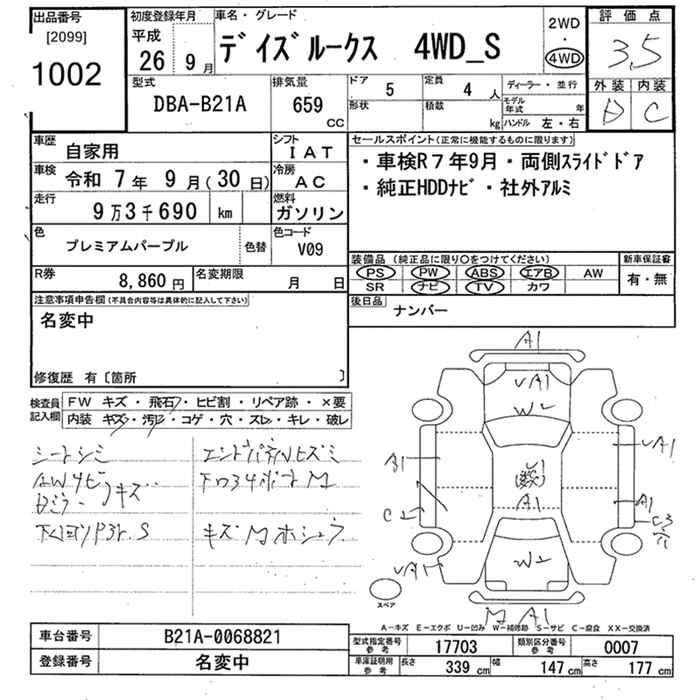 出品番号 初度登録年月 車名・グレード 2WD 評価点
[2099] 平成 デイズルークス 4WD_S ・ 3.5
1002 26 年 9 月 4WD 外装 内装
型式 排気量 ドア 5 定員 4 人 ディーラー・並行 D C
DBA-B21A 659 CC 形状 積載 kg モデル年式 年
ハンドル 左・右
車歴 自家用 シフト IAT セールスポイント(正常に機能するものに限ります)
車検 令和 7 年 9 月 (30 日) 冷房 AC ・車検R7年9月・両側スライドドア
走行 9万3千690 km 燃料 ガソリン ・純正HDDナビ・社外アルミ
色 プレミアムパープル 色替 色コード V09
装備品 (純正品に限り○をつけてください) 新車保証書
R券 8,860 円 名変期限 月 日 PS PW ABS エアB AW 有・無
SR ナビ TV カワ
注意事項申告欄(不具合内容等は具体的に記入して下さい) 後日品 ナンバー
名変中
修復歴 有〔箇所 〕
検査員記入欄 FW キズ・飛石・ヒビ割・リペア跡・×要
内装 キズ・汚レ・コゲ・穴・スレ・キレ・破レ
シートシミ
AWサビ キズ
キズMホシュウ
A1
A1
W2
A1
A1
A1
W2
A1
スペア
A-キズ E-エクボ U-凹み W-補修跡 S-サビ C-腐食 XX-交換済
車台番号 B21A-0068821 型式指定番号参考 17703 類別区分番号参考 0007
登録番号 名変中 車庫証明用参考 長さ 339 cm 幅 147 cm 高さ 177 cm